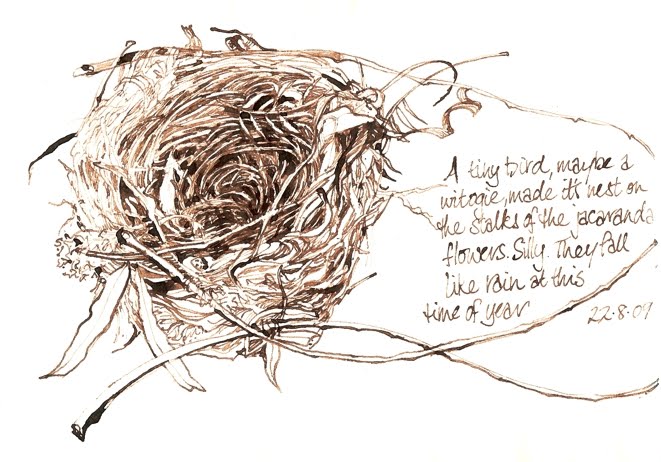 A tiny bird, maybe a
witogie, made it's nest on
the stalks of the jacaranda
flowers. Silly. They fall
like rain at this
time of year
22.8.09